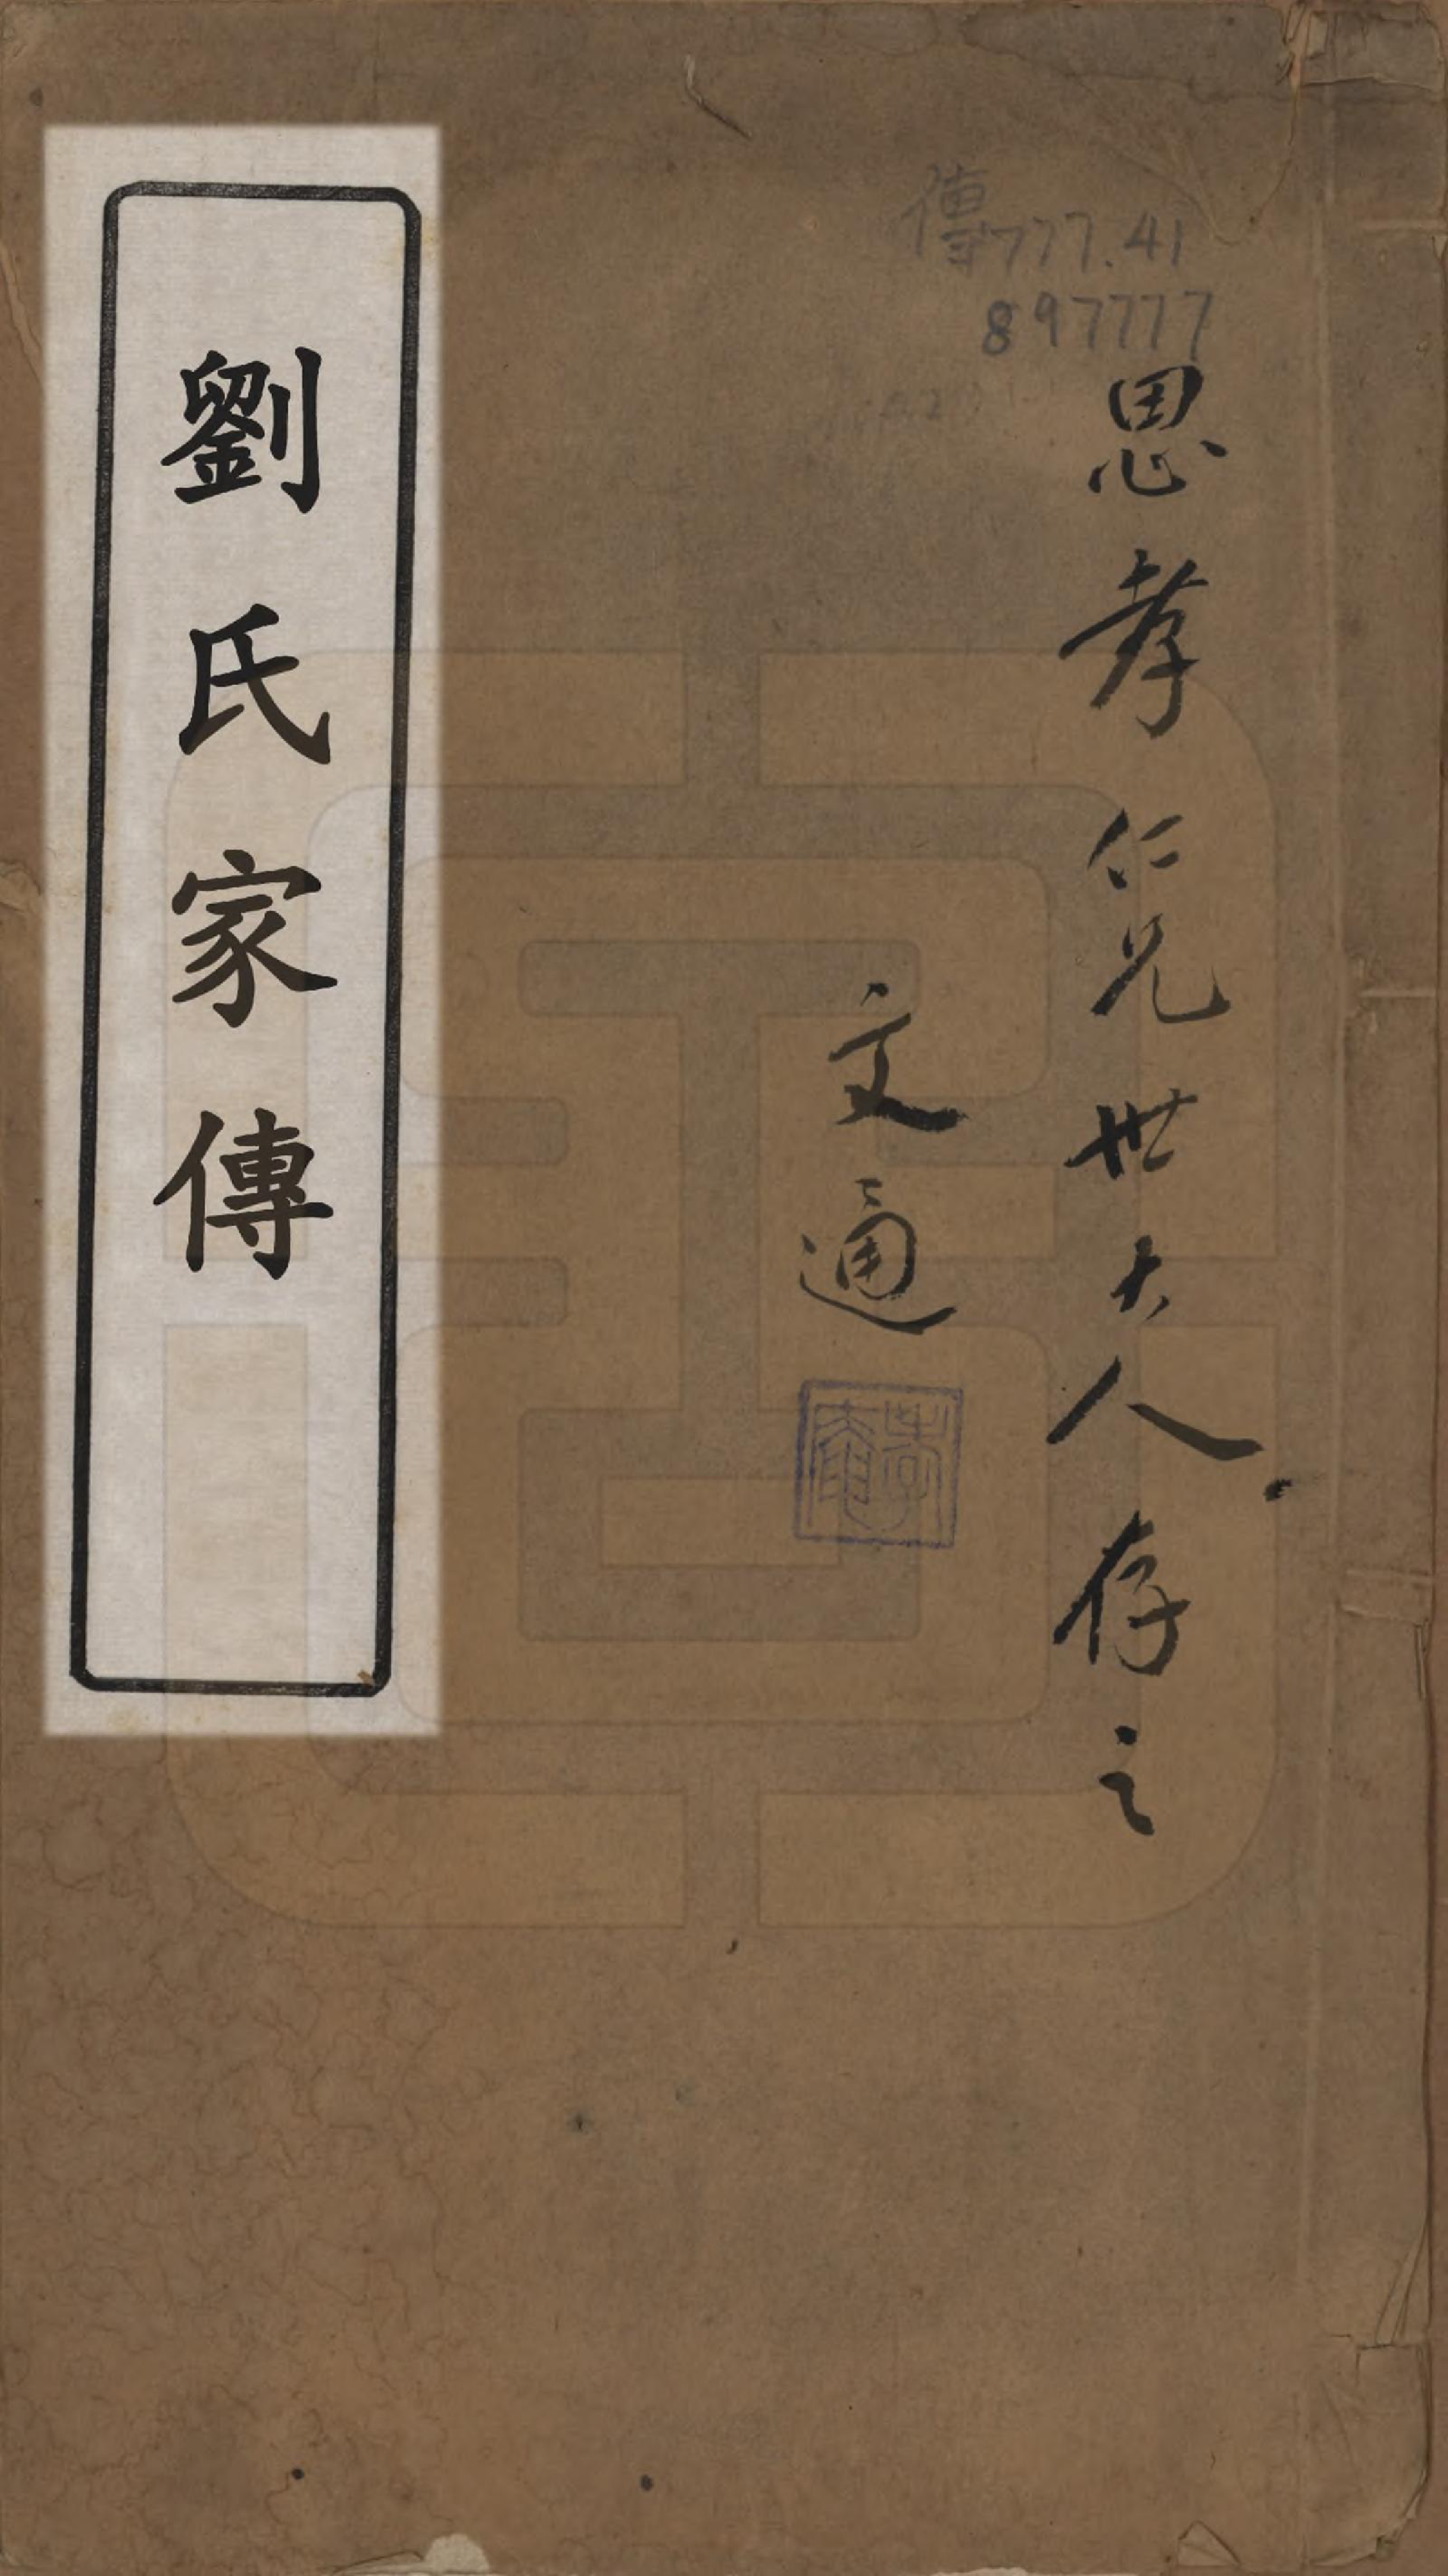 傳777.41
897777
思孝仁兄世大人存之
文通
劉氏家傳